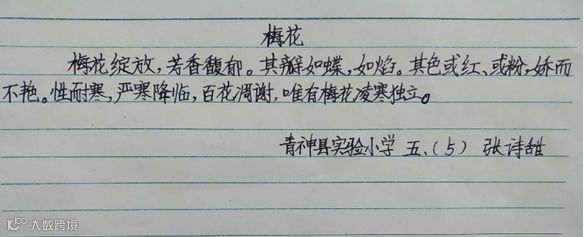 梅花
梅花绽放，芳香馥郁。其瓣如蝶，如焰。其色或红、或粉，娇而
不艳。性耐寒，严寒降临，百花凋谢，唯有梅花凌寒独立。
青神县实验小学 五、（5） 张诗甜
大数跨境